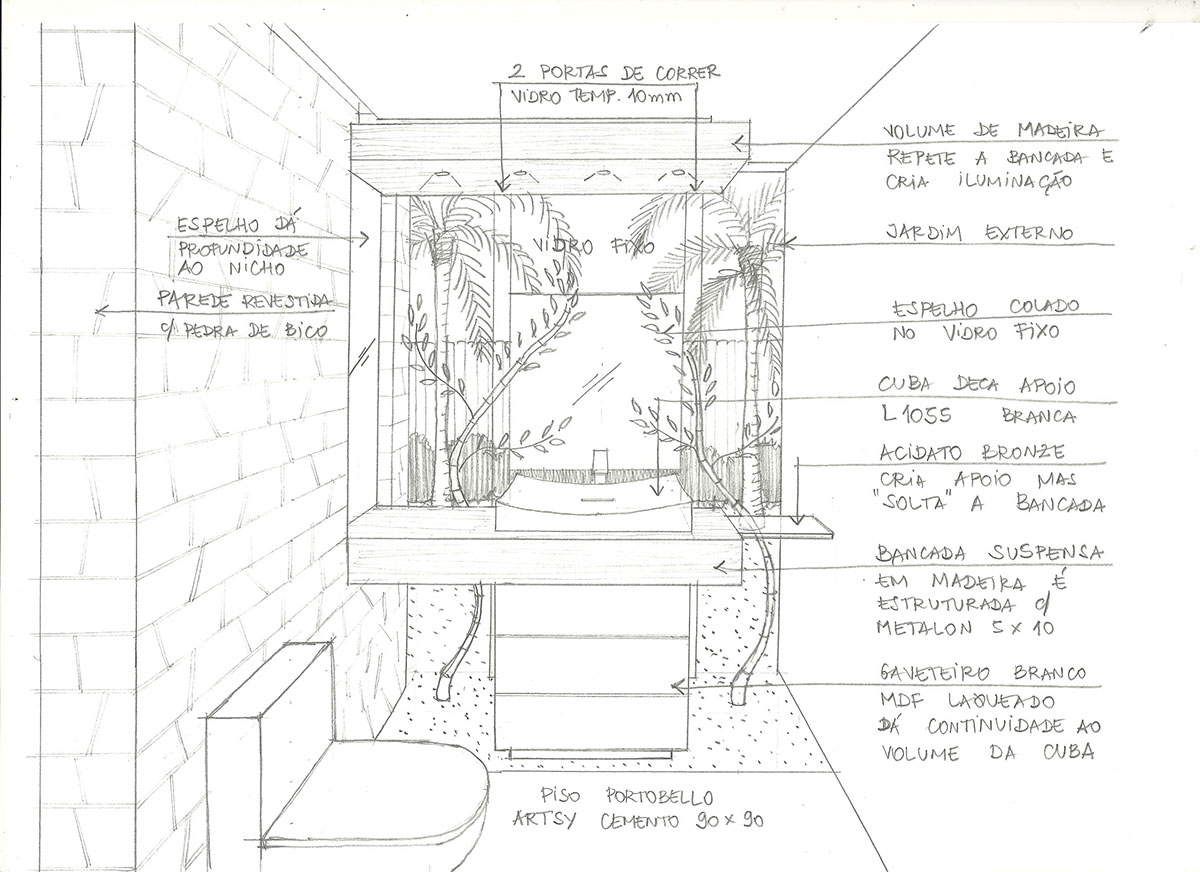 2 PORTAS DE CORRER
VIDRO TEMP. 10mm
VOLUME DE MADEIRA
REPETE A BANCADA E
CRIA ILUMINAÇÃO
ESPELHO DÁ
PROFUNDIDADE
AO NICHO
JARDIM EXTERNO
VIDRO FIXO
PAREDE REVESTIDA
c/ PEDRA DE BICO
ESPELHO COLADO
NO VIDRO FIXO
CUBA DECA APOIO
L1055 BRANCA
ACIDATO BRONZE
CRIA APOIO MAS
"SOLTA" A BANCADA
BANCADA SUSPENSA
EM MADEIRA É
ESTRUTURADA c/
METALON 5 x 10
GAVETEIRO BRANCO
MDF LAQUEADO
DÁ CONTINUIDADE AO
VOLUME DA CUBA
PISO PORTOBELLO
ARTSY CEMENTO 90 x 90